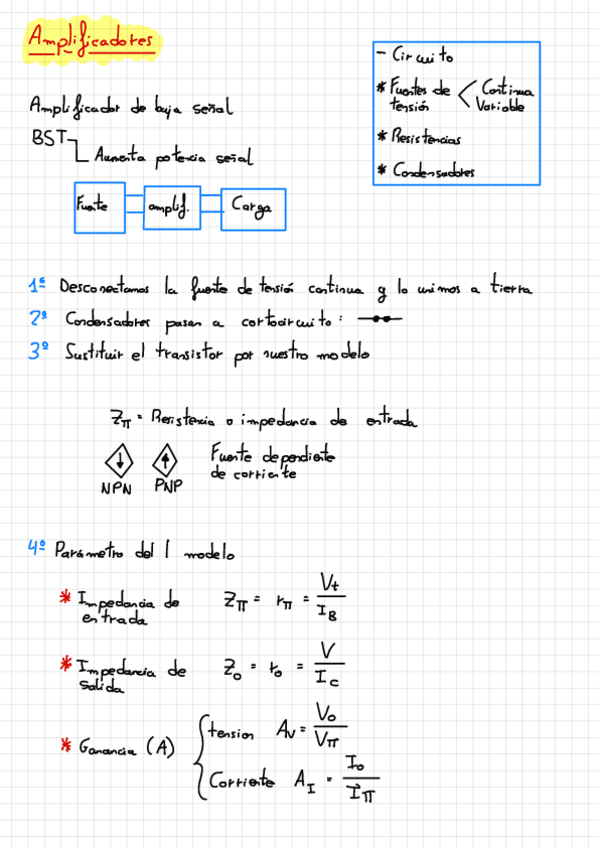 Amplificadores
- Circuito
* Fuentes de tensión < Continua Variable
* Resistencias
* Condensadores
Amplificador de baja señal
BST
Aumenta potencia señal
Fuente amplif. Carga
1º Desconectamos la fuente de tensión continua y lo unimos a tierra
2º Condensadores pasan a cortocircuito:
3º Sustituir el transistor por nuestro modelo
Zπ = Resistencia o impedancia de entrada
Fuente dependiente
de corriente
NPN PNP
4º Parámetro del modelo
* Impedancia de entrada Zπ = rπ = Vt / IB
* Impedancia de salida Zo = ro = V / IC
* Ganancia (A) { tension Av = Vo / Vπ
Corriente AI = Io / Iπ